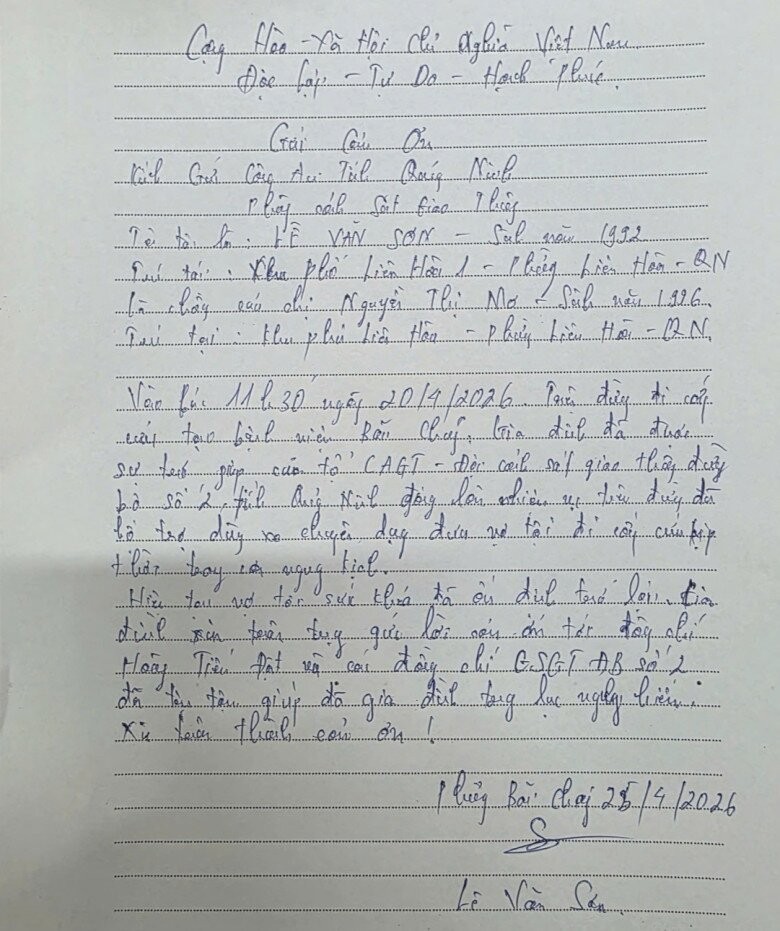 Cộng Hòa - Xã Hội Chủ Nghĩa Việt Nam
Độc Lập - Tự Do - Hạnh Phúc
Cảm Ơn
Kính Gửi Công An Tỉnh Quảng Ninh
Phòng cảnh Sát Giao Thông
Tên tôi là: LÊ VĂN SƠN - Sinh năm 1992
Trú tại: Khu phố Liên Hòa 1 - Phường Liên Hòa - QN
Là chồng của chị Nguyễn Thị Mơ - Sinh năm 1996.
Trú tại: Khu phố Liên Hòa - Phường Liên Hòa - QN.
Vào lúc 11h30 ngày 20/4/2026. Trên đường đi cấp
cứu tạo bệnh viện Bãi Cháy, Gia đình đã được
sự trợ giúp của tổ CAGT - Đội cảnh sát giao thông đường
bộ số 2, tỉnh Quảng Ninh đang làm nhiệm vụ trên đường đã
hỗ trợ dùng xe chuyên dụng đưa vợ tôi đi cấp cứu kịp
thời trong cơn nguy kịch.
Hiện tại vợ tôi sức khỏe đã ổn định trở lại. Gia
đình xin trân trọng gửi lời cảm ơn tới đồng chí
Hoàng Tiến Đạt và các đồng chí CSGT ĐB số 2
đã tận tâm giúp đỡ gia đình trong lúc nguy hiểm.
Xin chân thành cảm ơn!
Phường Bãi Cháy 25/4/2026
Lê Văn Sơn